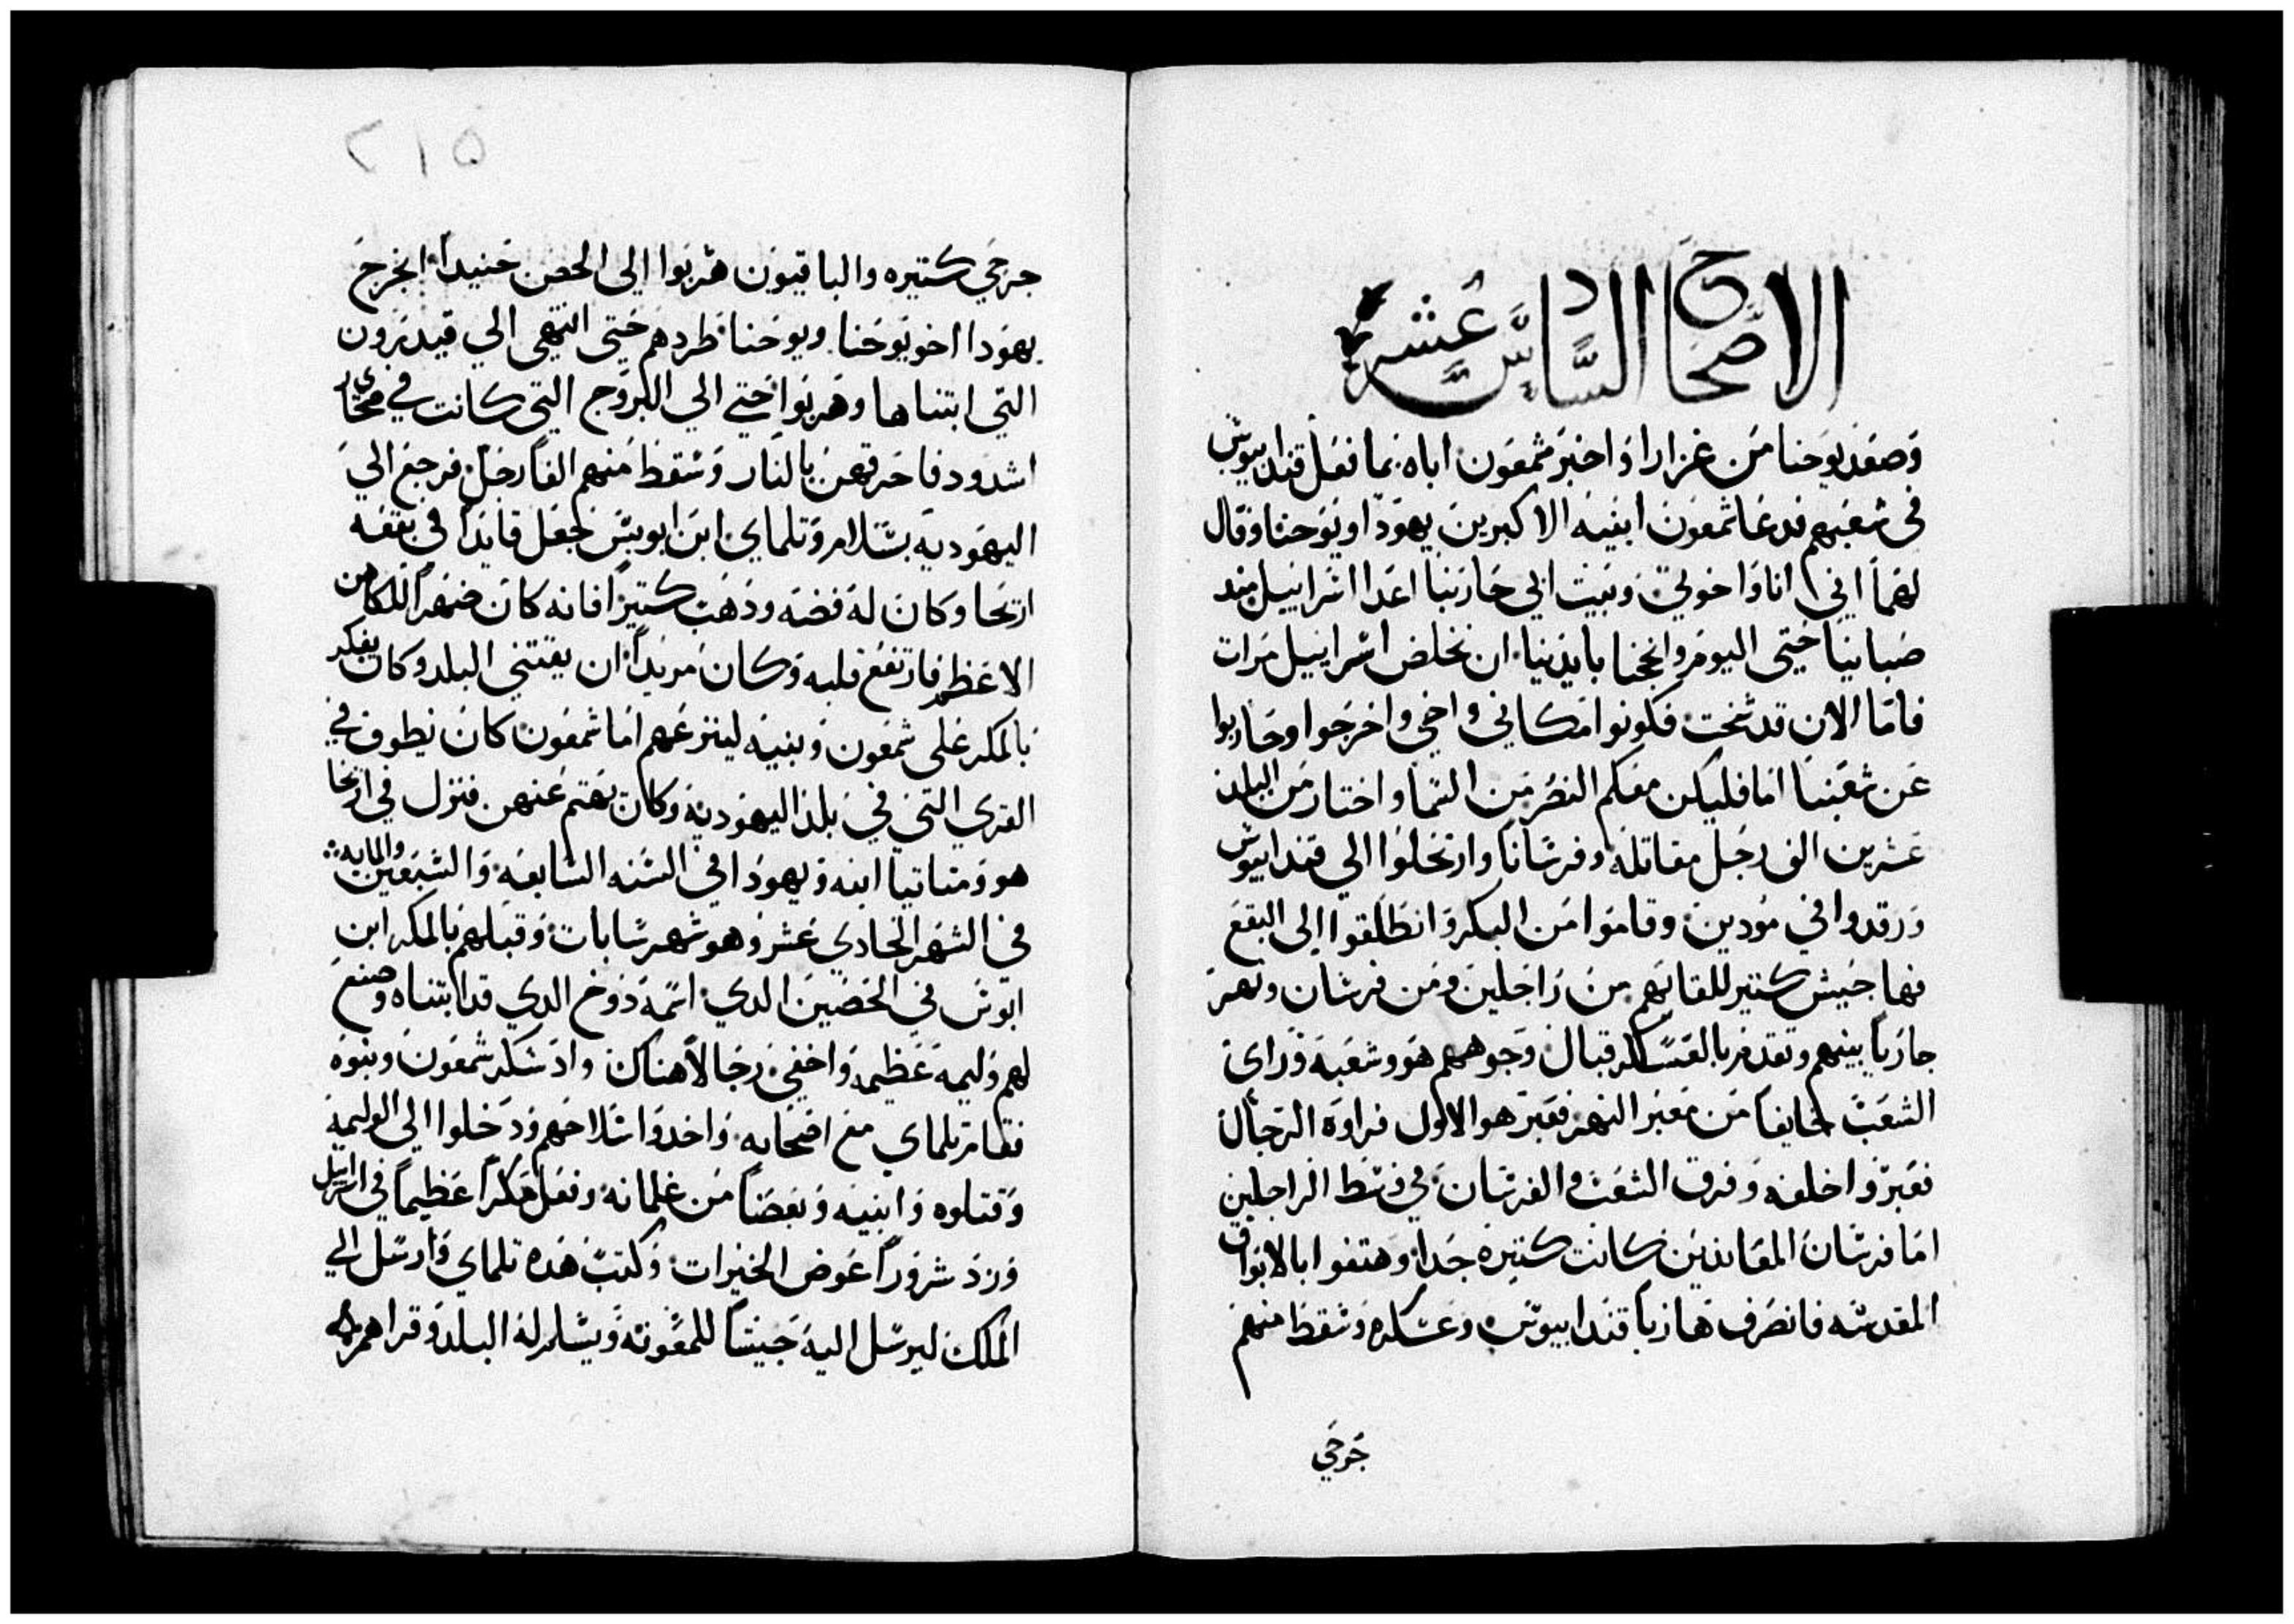 الاصحاح السادس عشر
وصعد يوحنا من غزارا واخبر شمعون اباه بما فعل قندابيوس
في شعبهم فدعا شمعون ابنيه الاكبرين يهودا ويوحنا وقال
لهما اني انا واخوتي وبيت ابي حاربنا اعدا اسراييل مند
صبانيا حتي اليوم وانجحنا بايدينا ان نخلص اسراييل مرات
فاما الان قد شخت فكونوا مكاني واخي واخرجوا وحاربوا
عن شعبنا اما فليكن معكم النصر من السما واختار من البلد
عشرين الف رجل مقاتله وفرسانا وارتحلوا الي قنداييوس
ورقدوا في مودين وقاموا من البكر وانطلقوا الي البقع
فها جيش كتير للقايهم من راجلين ومن فرسان ونهر
جاريا بينهم وتقدم بالعسكر قبال وجوههم هو وشعبه وراي
الشعب خايفا من معبر النهر فعبر هو الاول فراوه الرجال
فعبروا خلفه وفرق الشعب والفرسان في وسط الراجلين
اما فرسان المعاندين كانت كتيره جدا وهتفوا بالابواق
المقدسه فانصرف هاربا قندابيوس وعسكره وسقط منهم
جرحي
٢١٥
جرحي كتيره والباقيون هربوا الي الحصن حنيدا انجرح
يهودا اخو يوحنا ويوحنا طردهم حتي انتهي الي قيدرون
التي ابتناها وهربوا حتي الي البروج التي كانت في صحاري
اشدود فاحرقهن بالنار وسقط منهم الفا رجل فرجع الي
اليهوديه بسلام وتلماي ابن ابوبس جعل قايدا في بقعه
اريحا وكان له فضه ودهب كتيرا فانه كان صهرا للكاهن
الاعظم فارتفع قلبه وكان مريدا ان يقتني البلد وكان يفكر
بالمكر علي شمعون وبنيه لينزعهم اما شمعون كان يطوف في
القري التي في بلد اليهوديه وكان يهتم عنهن فنزل في اريحا
هو ومتاتيا ابنه ويهودا في السنه السابعه والسبعين والمايه
في الشهر الحادي عشر وهو شهر ساباث وقبلهم بالمكر ابن
ابوس في الحصين الدي اسمه دوخ الدي قد ابتناه وصنع
لهم وليمه عظيمه واخفي رجالا هناك واد سكر شمعون وبنوه
فقام تلماي مع اصحابه واخدوا سلاحهم ودخلوا الي الوليمه
وقتلوه وابنيه وبعضا من غلمانه وفعل مكرا عظيما في اسراييل
ورد شرورا عوض الخيرات وكتب هده تلماي وارسل الي
الملك ليرسل اليه جيشا للمعونه ويسلم له البلد وقراهم